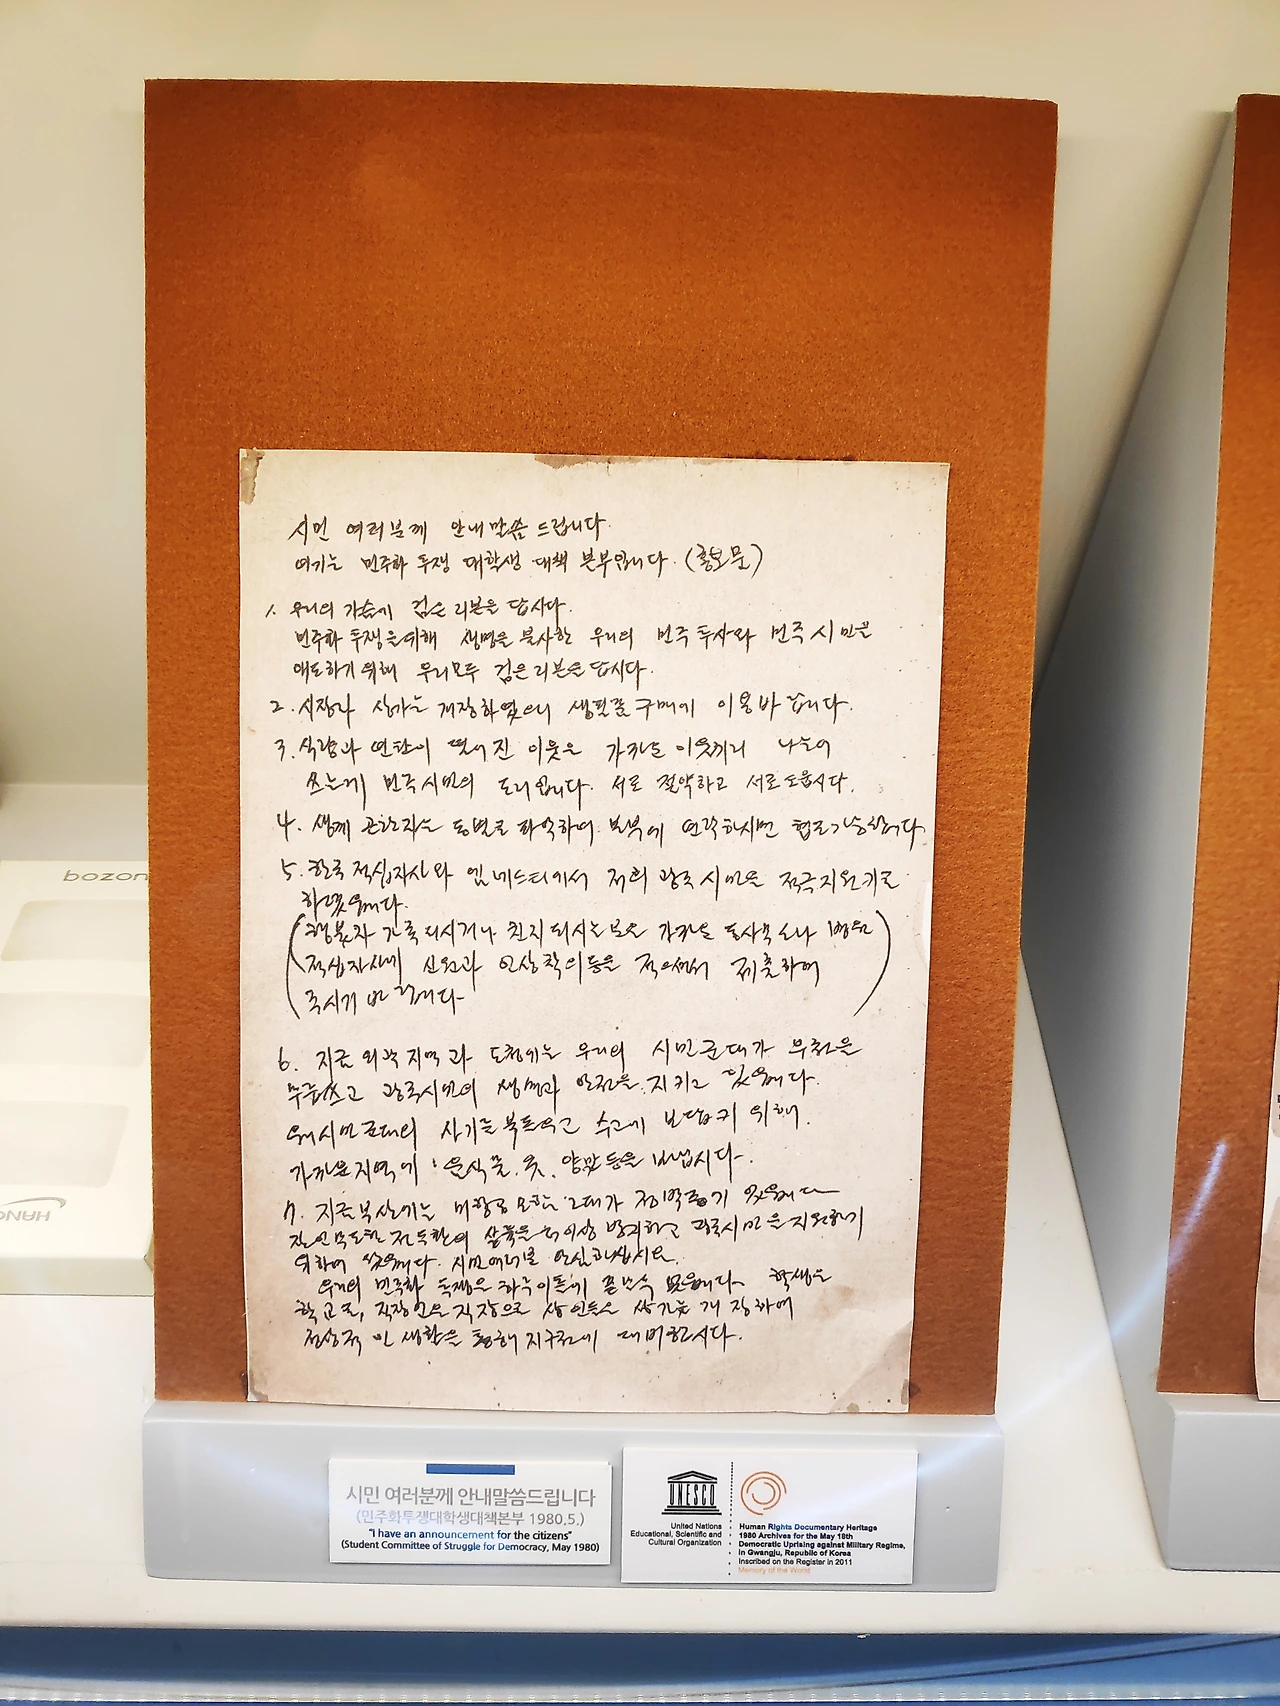 시민 여러분께 안내말씀 드립니다.
여기는 민주화 투쟁 대학생 대책 본부입니다. (홍보문)
1. 우리의 가슴에 검은 리본을 답시다.
민주화 투쟁을 위해 생명을 불사한 우리의 민주 투사와 민주 시민을
애도하기 위해 우리모두 검은 리본을 답시다.
2. 시장과 상가는 개장하였으니 생필품 구매에 이용바랍니다.
3. 식량과 연탄이 떨어진 이웃은 가까운 이웃끼리 나누어
쓰는게 민주시민의 도리입니다. 서로 절약하고 서로 도웁시다.
4. 생계 곤란자는 동별로 파악하여 본부에 연락하시면 협조가능합니다.
5. 한국 적십자사와 엠네스티에서 저희 광주 시민을 적극지원키로
하였읍니다.
(행불자 가족되시거나 친지 되시는 분은 가까운 동사무소나 병원
적십자사에 신원과 인상착의등을 적으셔서 제출하여
주시기 바랍니다)
6. 지금 외곽 지역과 도청에는 우리의 시민군대가 무한을
무릅쓰고 광주시민의 생명과 안전을 지키고 있읍니다.
시민군대의 사기를 북돋우고 수고에 보답키 위해
가까운 지역에 음식물, 옷, 양말 등을 바칩시다.
7. 지금 부산에는 미항공모함 2대가 정박중에 있읍니다
잔인무도한 전두환의 살육을 더이상 방지하고 광주시민을 지원하기
위하여 왔읍니다. 시민여러분 안심하십시요.
우리의 민주화 투쟁은 하루이틀에 끝날수 없읍니다. 학생은
학교로, 직장인은 직장으로 상인들은 상가를 개장하여
정상적인 생활을 통해 지구전에 대비합시다.
시민 여러분께 안내말씀드립니다
(민주화투쟁대학생대책본부 1980.5.)
"I have an announcement for the citizens"
(Student Committee of Struggle for Democracy, May 1980)
UNESCO
United Nations
Educational, Scientific and
Cultural Organization
Human Rights Documentary Heritage
1980 Archives for the May 18th
Democratic Uprising against Military Regime,
in Gwangju, Republic of Korea
Inscribed on the Register in 2011
Memory of the World
bozon
HANO